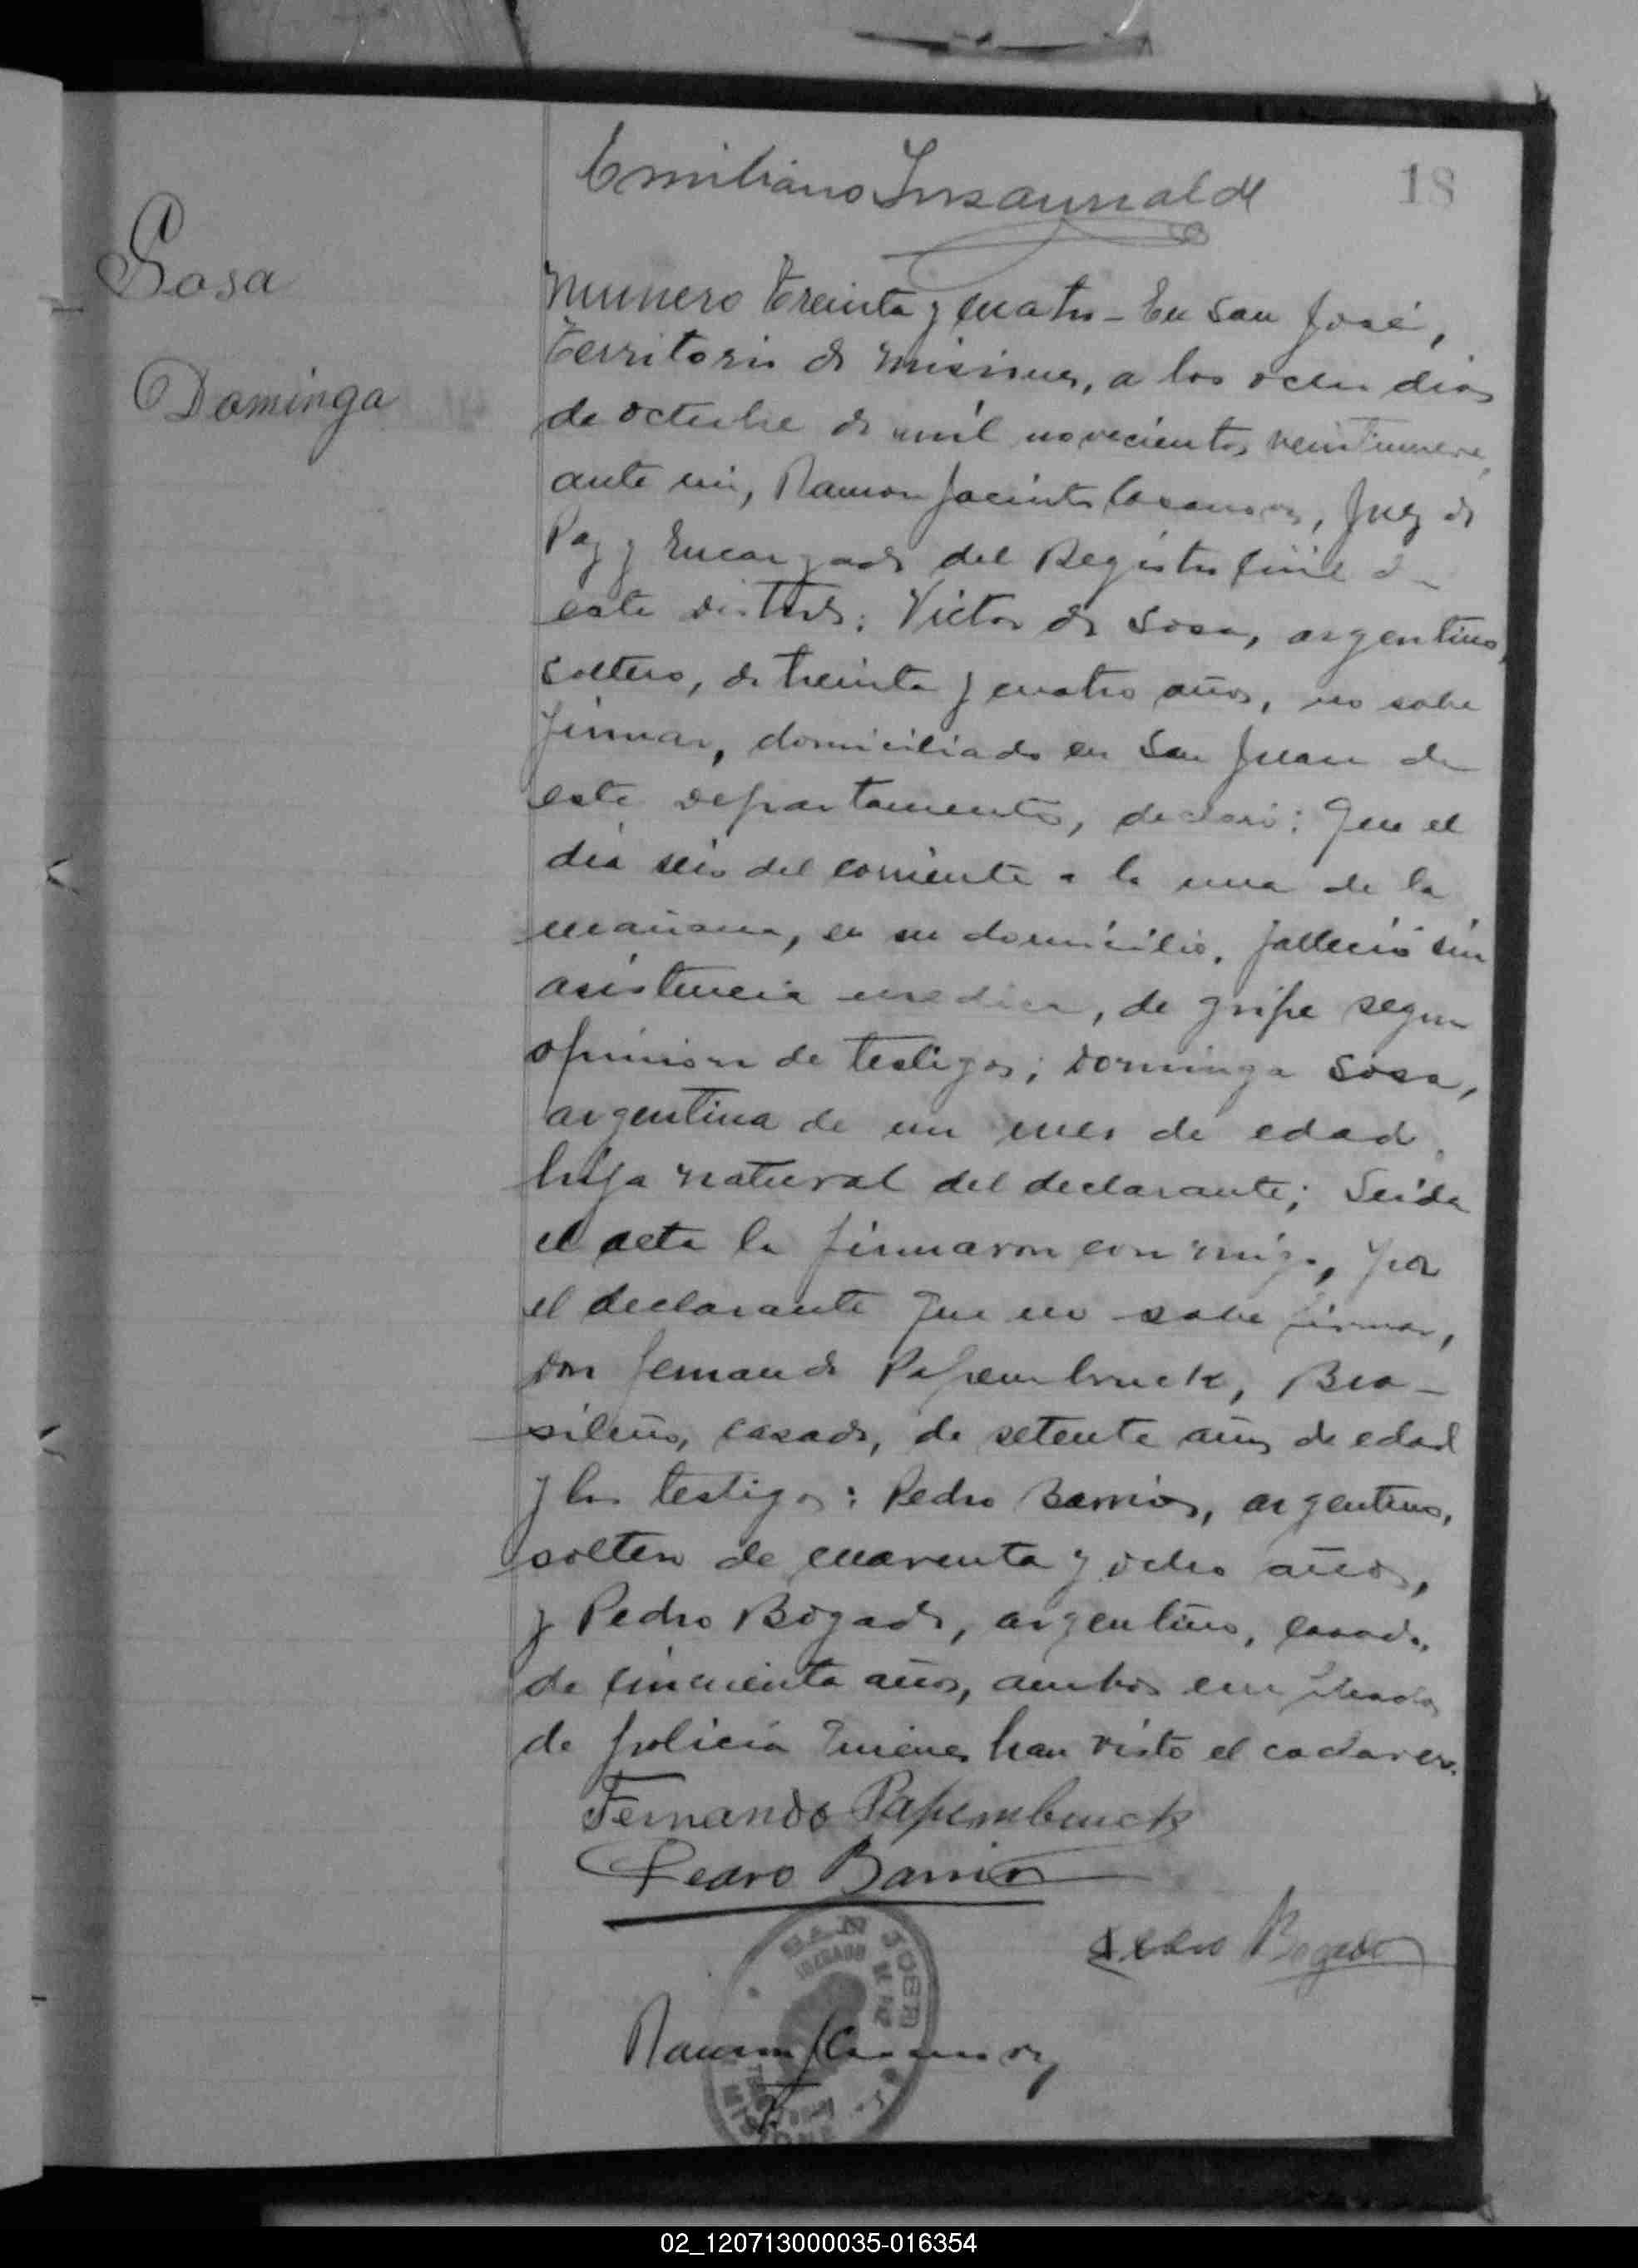 Emiliano Insaurralde
18
Sosa
Dominga
Numero treinta y cuatro - En San José,
territorio de Misiones, a los ocho dias
de octubre de mil novecientos veintinueve,
ante mi, Ramon Jacinto Casanova, Juez de
Paz y Encargado del Registro Civil de
este distrito: Victor de Sosa, argentino,
soltero, de treinta y cuatro años, no sabe
firmar, domiciliado en San Juan de
este departamento, declaró: Que el
dia seis del corriente a la una de la
mañana, en su domicilio, falleció sin
asistencia medica, de gripe segun
opinion de testigos; Dominga Sosa,
argentina de un mes de edad,
hija natural del declarante; Leida
el acta la firmaron con migo, por
el declarante que no sabe firmar,
don Fernando Papembruck, Bra-
sileño, casado, de setenta años de edad
y los testigos: Pedro Barrios, argentino,
soltero de cuarenta y ocho años,
y Pedro Bogado, argentino, casado,
de cincuenta años, ambos empleados
de policia quienes han visto el cadaver.
Fernando Papembruck
Pedro Barrios
Pedro Bogado
SAN JOSE
JUZGADO DE PAZ
Ramon J Casanova
MISIONES
02_120713000035-016354